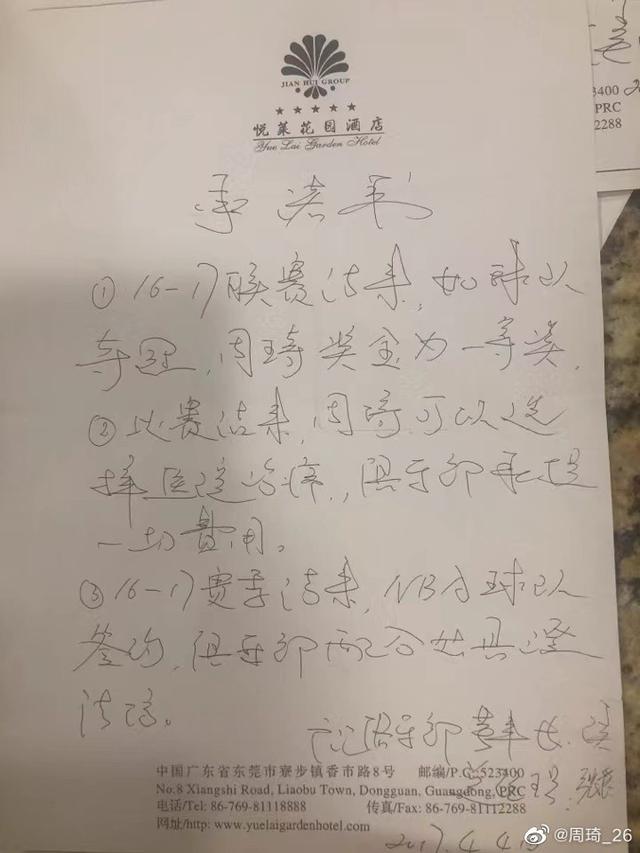 JIAN HUI GROUP
★★★★★
悦莱花园酒店
Yue Lai Garden Hotel
承诺书
① 16-17联赛结束,如球队
夺冠,周琦奖金为一等奖,
② 比赛结束,周琦可以选
择医院治疗,俱乐部承担
一切费用。
③ 16-17赛季结束,NBA球队
签约,俱乐部配合出具澄
清信。
俱乐部董事长
中国广东省东莞市寮步镇香市路8号 邮编/P.C:523400
No.8 Xiangshi Road, Liaobu Town, Dongguan, Guangdong, PRC
电话/Tel: 86-769-81118888 传真/Fax: 86-769-81112288
网址/http: www.yuelaigardenhotel.com
2017.4.4
3400
PRC
2288
@周琦_26